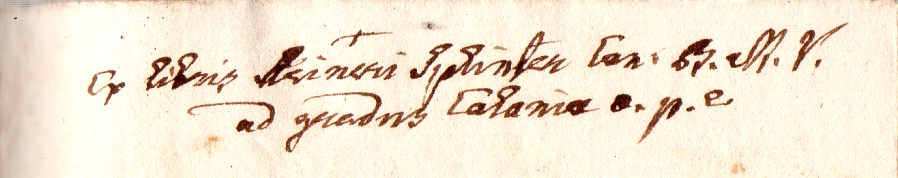 Ex libris Reineri Splinter Can. B. M. V.
ad gradus Coloniae. p. e